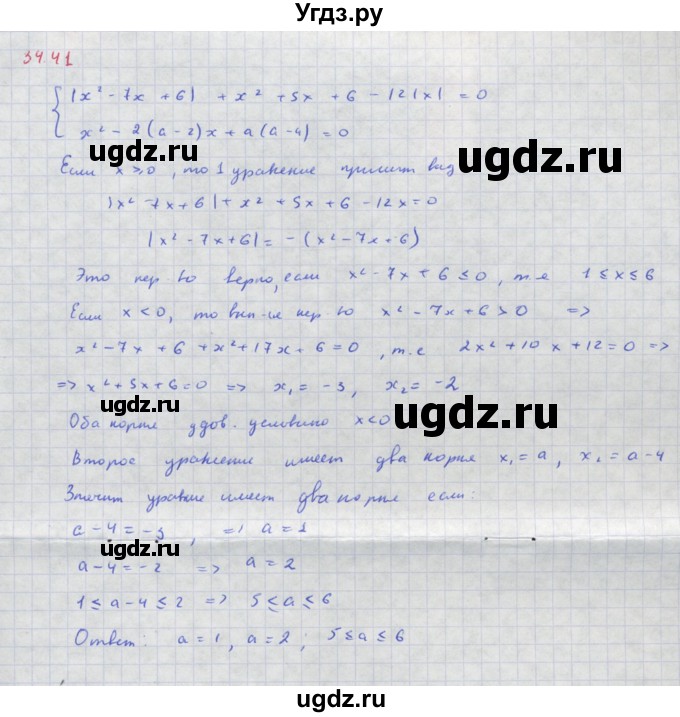 Угдз.ру
34.41
|x² - 7x + 6| + x² + 5x + 6 - 12|x| = 0
x² - 2(a - 2)x + a(a - 4) = 0
Если x ≥ 0, то 1 уравнение примит вид
|x² - 7x + 6| + x² + 5x + 6 - 12x = 0
|x² - 7x + 6| = -(x² - 7x + 6)
Это нер во верно, если x² - 7x + 6 ≤ 0, т.е 1 ≤ x ≤ 6
Если x < 0, то вып-ие нер во x² - 7x + 6 > 0 =>
x² - 7x + 6 + x² + 17x + 6 = 0, т.е 2x² + 10x + 12 = 0 =>
=> x² + 5x + 6 = 0 => x₁ = -3, x₂ = -2
Оба корня удов. условию x < 0
Второе уравнение имеет два корня x₁ = a, x₂ = a - 4
Значит уравние имеет два корня если:
a - 4 = -3, => a = 1
a - 4 = -2 => a = 2
1 ≤ a - 4 ≤ 2 => 5 ≤ a ≤ 6
Ответ: a = 1, a = 2; 5 ≤ a ≤ 6
ugdz.ru